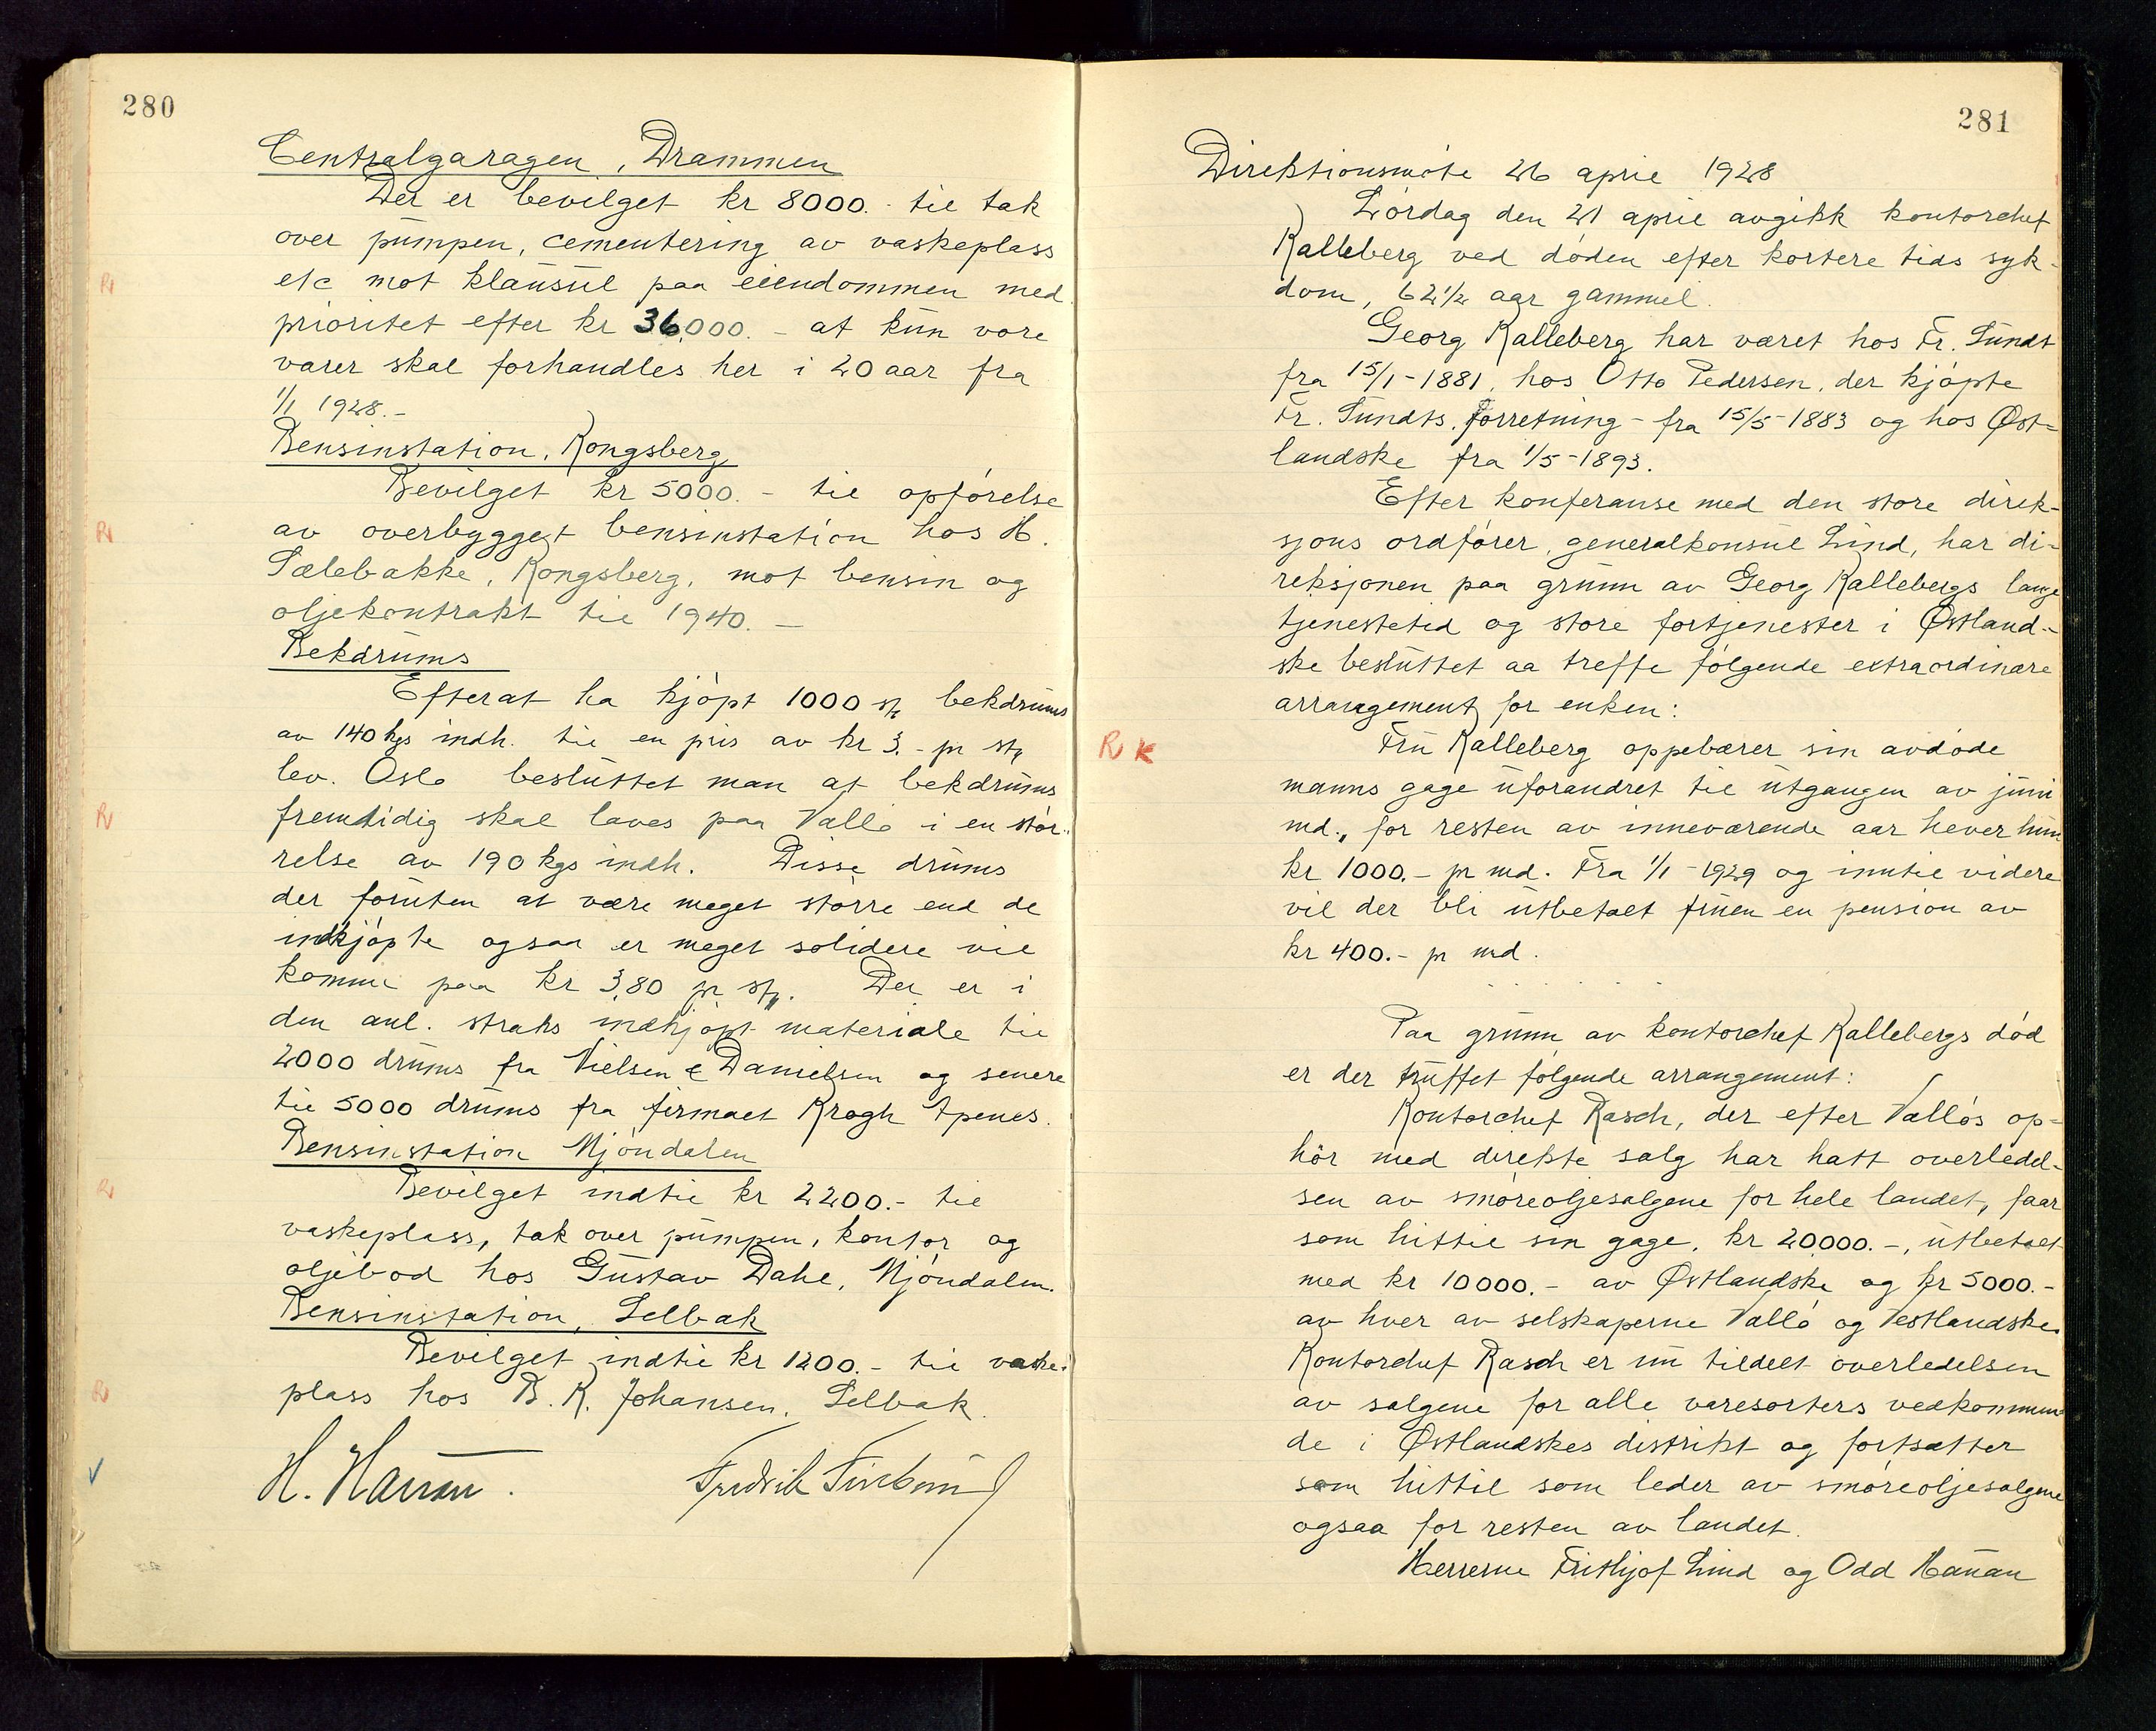 280
Centralgaragen, Drammen
Der er bevilget kr 8000.- til tak
over pumpen, cementering av vaskeplass
etc mot klausul paa eiendommen med
prioritet efter kr 36,000.- at kun vore
varer skal forhandles her i 20 aar fra
1/1 1928.-
Bensinstation, Kongsberg
Bevilget kr 5000.- til opførelse
av overbygget bensinstation hos H.
Sælebakke, Kongsberg, mot bensin og
oljekontrakt til 1940.-
Bekdrums
Efterat ha kjøpt 1000 stk bekdrums
av 140 kgs indh. til en pris av kr 3.- pr stk
lev. Oslo besluttet man at bekdrums
fremtidig skal laves paa Vallø i en stør-
relse av 190 kgs indh. Disse drums
der foruten at være meget større end de
indkjøpte ogsaa er meget solidere vil
komme paa kr 3,80 pr stk. Der er i
den anl. straks indkjøpt materiale til
2000 drums fra Nielsen & Danielsen og senere
til 5000 drums fra firmaet Krogh Apenes.
Bensinstation Mjøndalen
Bevilget indtil kr 2200.- til
vaskeplass, tak over pumpen, kontor og
oljebod hos Gustav Dahl, Mjøndalen.
Bensinstation, Selbak
Bevilget indtil kr 1200.- til vaske-
plass hos B. K. Johansen, Selbak.
H. Hansen. Fredrik
R
R
R
R
R
281
Direktionsmøte 26 april 1928
Lørdag den 21 april avgikk kontorchef
Kalleberg ved døden efter kortere tids syk-
dom, 62 1/2 aar gammel.
Georg Kalleberg har været hos Fr. Sundt
fra 15/1-1881, hos Otto Pedersen, der kjøpte
Fr. Sundts forretning - fra 15/5-1883 og hos Øst=
landske fra 1/5-1893.
Efter konferanse med den store direk-
sjons ordfører, generalkonsul Lind, har di-
reksjonen paa grunn av Georg Kallebergs lange
tjenestetid og store fortjenester i Østland-
ske besluttet aa treffe følgende extraordinære
arrangement for enken:
R K
Fru Kalleberg oppebærer sin avdøde
manns gage uforandret til utgangen av juni
md., for resten av inneværende aar hever hun
kr 1000.- pr md. Fra 1/1-1929 og inntil videre
vil der bli utbetalt fruen en pension av
kr 400.- pr md.
Paa grunn av kontorchef Kallebergs død
er der truffet følgende arrangement:
Kontorchef Rasch, der efter Valløs op=
hør med direkte salg har hatt overledel-
sen av smøreoljesalgene for hele landet, faar
som hittil sin gage, kr 20,000.-, utbetalt
med kr 10000.- av Østlandske og kr 5000.-
av hver av selskaperne Vallø og Vestlandske.
Kontorchef Rasch er nu tildelt overledelsen
av salgene for alle varesorters vedkommen=
de i Østlandskes distrikt og fortsætter
som hittil som leder av smøreoljesalgene
ogsaa for resten av landet.
Herrerne Frithjof Lind og Odd Hanan